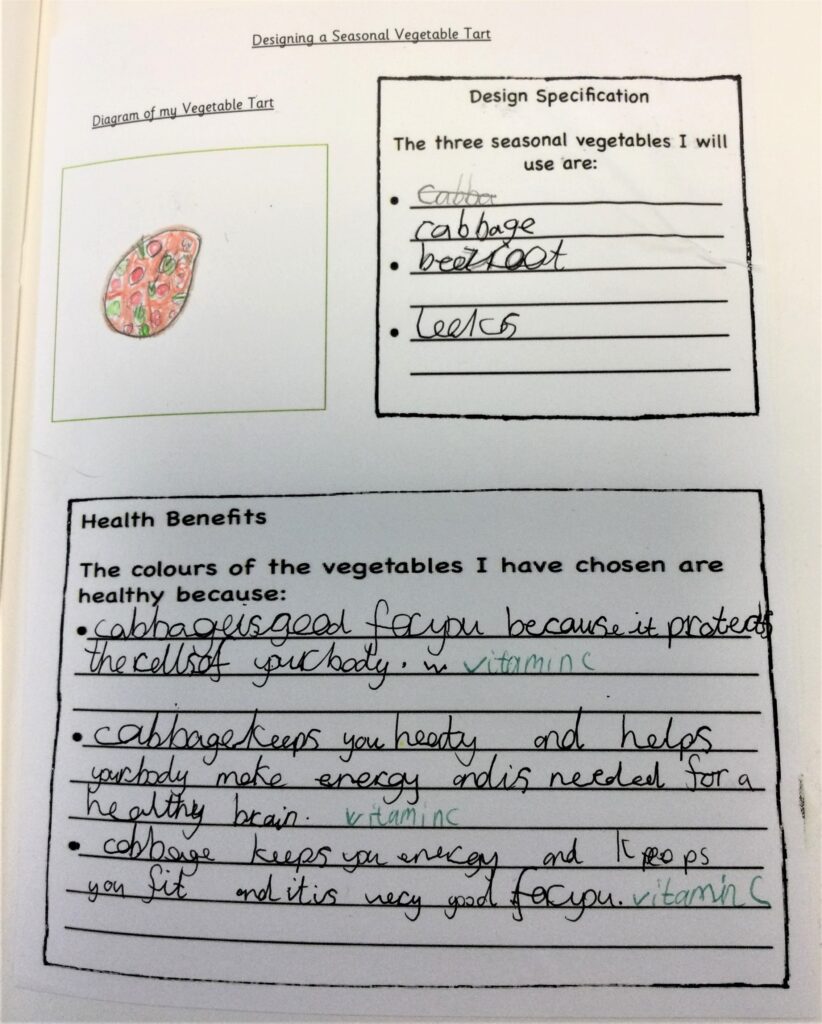 Designing a Seasonal Vegetable Tart
Diagram of my Vegetable Tart
Design Specification
The three seasonal vegetables I will
use are:
• Cabba
cabbage
• beetroot
• leeks
Health Benefits
The colours of the vegetables I have chosen are
healthy because:
• cabbage is good for you because it protects
the cells of your body. vitamin c
• cabbage keeps you heaty and helps
your body make energy and is needed for a
healthy brain. vitamin c
• cabbage keeps you energy and keeps
you fit and it is very good for you. vitamin C